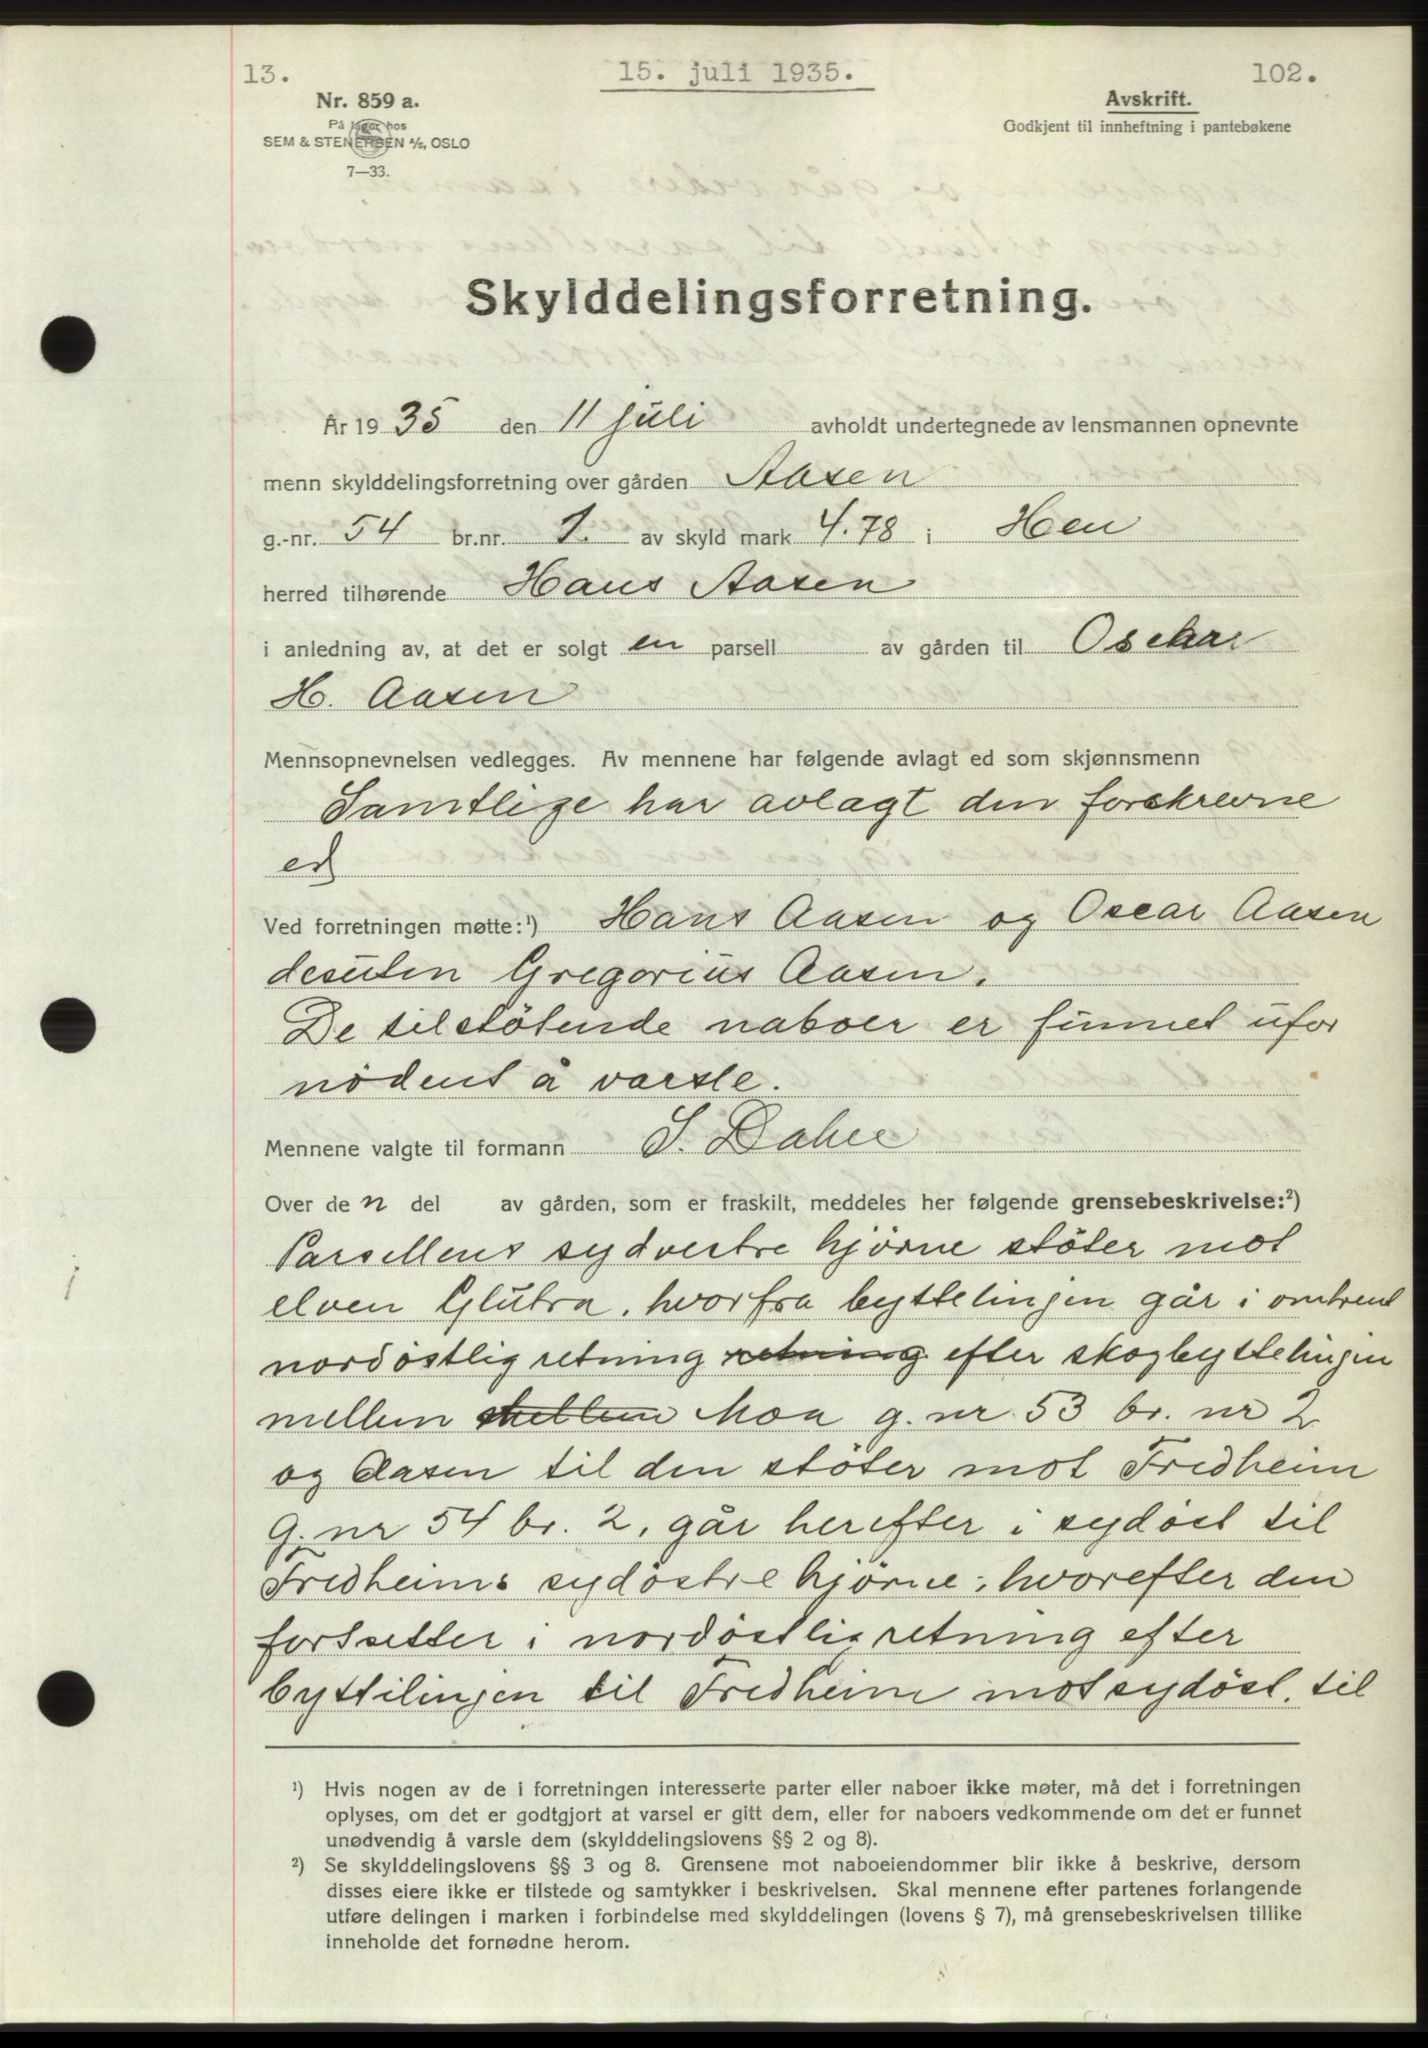 13.
15. juli 1935.
102.
Nr. 859 a.
På lager hos
SEM & STENERSEN A/S, OSLO
7—33.
Avskrift.
Godkjent til innheftning i pantebøkene
Skylddelingsforretning.
År 1935 den 11 juli avholdt undertegnede av lensmannen opnevnte
menn skylddelingsforretning over gården Aasen
g.-nr. 54 br.nr. 1. av skyld mark 4.78 i Hen
herred tilhørende Hans Aasen
i anledning av, at det er solgt en parsell av gården til Oskar
H. Aasen
Mennsopnevnelsen vedlegges. Av mennene har følgende avlagt ed som skjønnsmenn
Samtlige har avlagt den forskrevne
ed
Ved forretningen møtte:¹) Hans Aasen og Oscar Aasen
desuten Gregorius Aasen.
De tilstötende naboer er funnet ufor
nödent å varsle.
Mennene valgte til formann S. Dahle
Over de n del av gården, som er fraskilt, meddeles her følgende grensebeskrivelse:²)
Parsellens sydvestre hjörne stöter mot
elven Glutra, hvorfra byttelinjen går i omtrent
nordöstlig retning retning efter skogbyttelinjen
mellem mellem Moa g. nr. 53 br. nr 2
og Aasen til den stöter mot Fredheim
g. nr 54 br. 2, går herefter i sydöst til
Fredheims sydöstre hjörne, hvorefter den
fortsetter i nordöstlig retning efter
byttilinjen til Fredheim mot sydöst, til
¹) Hvis nogen av de i forretningen interesserte parter eller naboer ikke møter, må det i forretningen
oplyses, om det er godtgjort at varsel er gitt dem, eller for naboers vedkommende om det er funnet
unødvendig å varsle dem (skylddelingslovens §§ 2 og 8).
²) Se skylddelingslovens §§ 3 og 8. Grensene mot naboeiendommer blir ikke å beskrive, dersom
disses eiere ikke er tilstede og samtykker i beskrivelsen. Skal mennene efter partenes forlangende
utføre delingen i marken i forbindelse med skylddelingen (lovens § 7), må grensebeskrivelsen tillike
inneholde det fornødne herom.